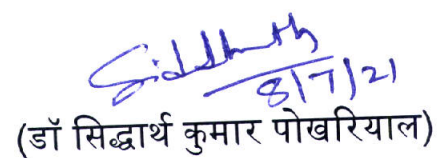 Siddharth
8/7/21
(डॉ सिद्धार्थ कुमार पोखरियाल)